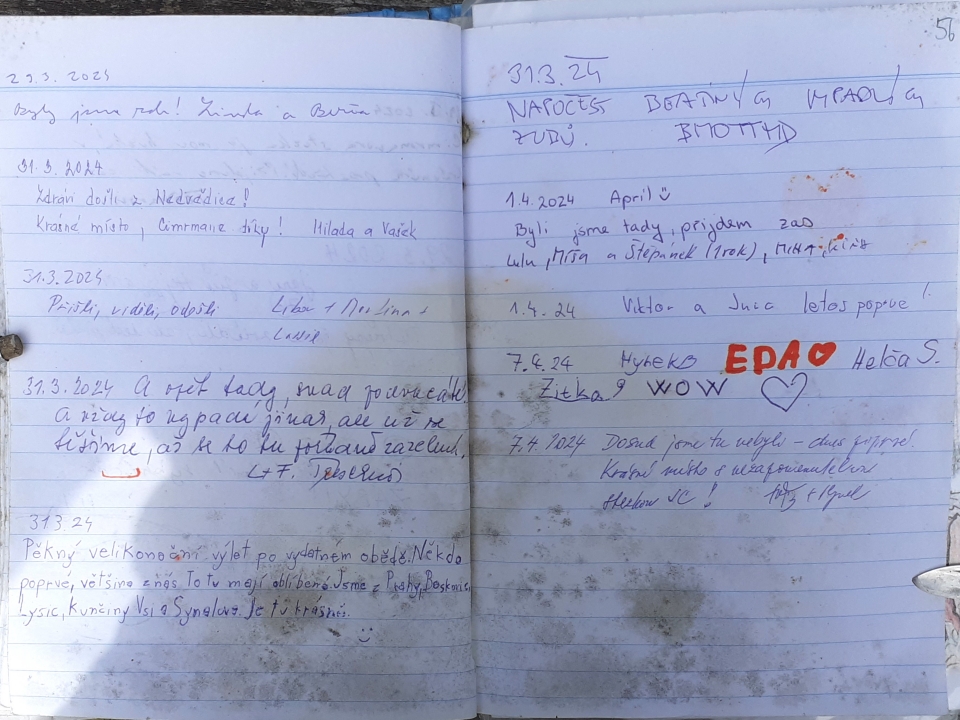 29.3. 2024
Byly jsme zde! Linda a
31.3. 2024
Zdrávi došli z Nedvědice!
Krásné místo, Cimrmane díky! Milada a Vašek
31.3. 2024
Přišli, viděli, odešli Libor + Martina +
31.3. 2024 A opět tady, snad podvacáté.
A vždy to vypadá jinak, ale už se
těšíme, až se to tu
L + F.
31.3.24
Pěkný velikonoční výlet po vydatném obědě. Někdo
poprvé, většina z nás to tu mají oblíbené. Jsme z Prahy, Boskovic,
Lysic, Kunčiny Vsi a Synalova. Je tu krásně.
56
31.3.24
NAPOČEST
ZUBŮ.
1.4.2024 Apríl
Byli jsme tady, přijdem zas
Lulu, Míťa a Štěpánek (1rok),
1.4. 24 Viktor a letos poprvé!
7.4.24 Hynek EDA Helča S.
Zitka WOW
7.4. 2024 Dosud jsme tu nebyli – dnes poprvé!
Krásné místo s
JC!